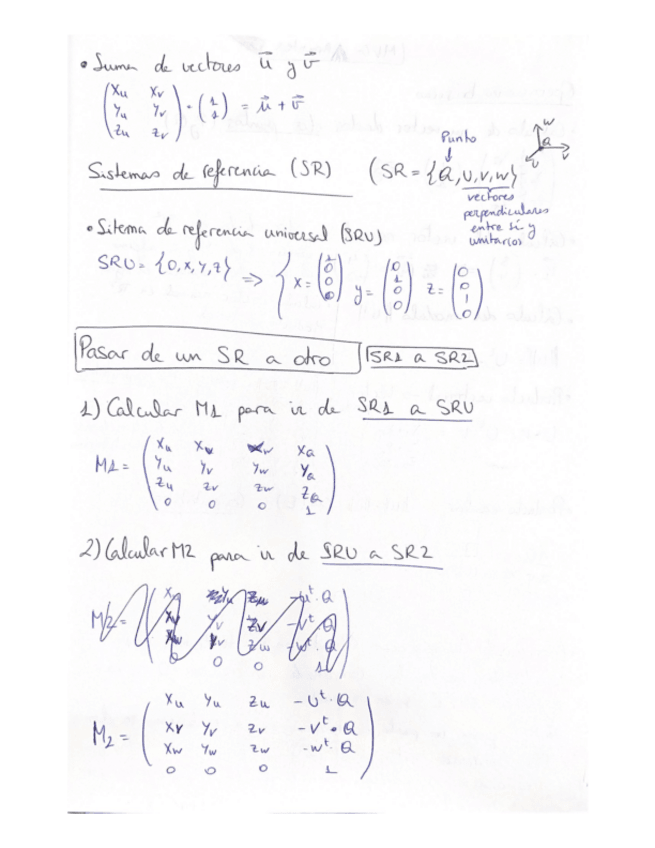 • Suma de vectores u⃗ y v⃗
( xu xv
yu yv
zu zv ) · ( 1
1 ) = u⃗ + v⃗
Sistemas de referencia (SR) (SR = {Q, u, v, w}
Punto
↓
w
Q
u v
vectores
perpendiculares
entre sí y
unitarios
• Sitema de referencia universal (SRU)
SRU = {0, x, y, z} => { x = (1 0 0 0) y = (0 1 0 0) z = (0 0 1 0)
Pasar de un SR a otro SR1 a SR2
1) Calcular M1 para ir de SR1 a SRU
M1 = ( xu xv xw xQ
yu yv yw yQ
zu zv zw zQ
0 0 0 1 )
2) Calcular M2 para ir de SRU a SR2
M2 = ( xu yu zu -u^t · Q
xv yv zv -v^t · Q
xw yw zw -w^t · Q
0 0 0 1 )